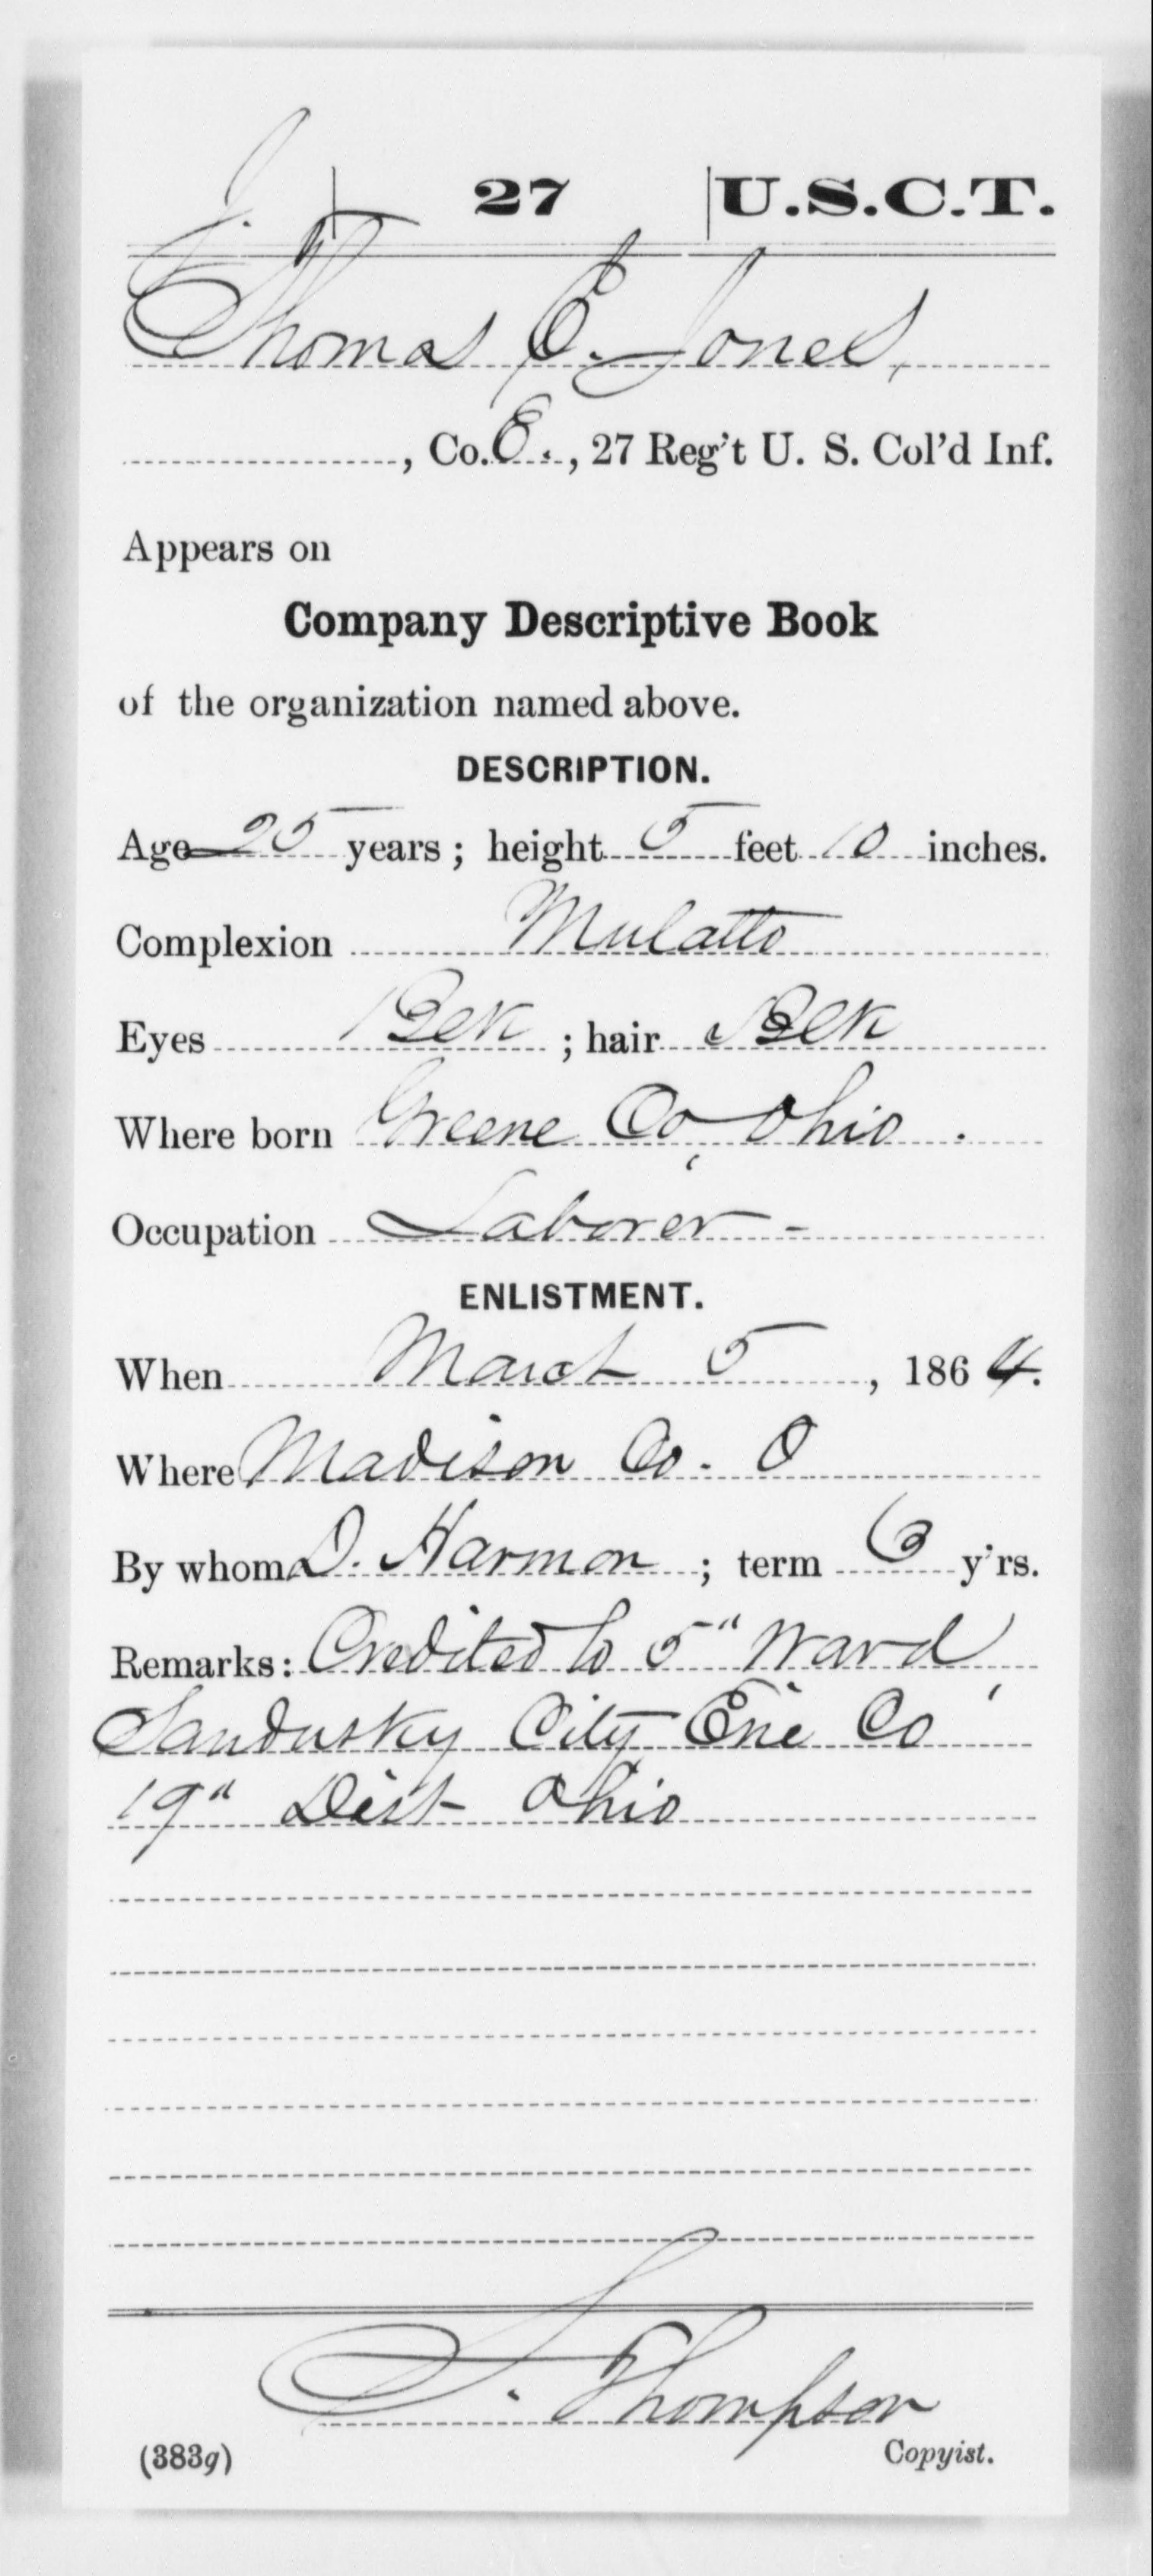 J. | 27 | U.S.C.T.
Thomas E. Jones,
, Co. E., 27 Reg't U. S. Col'd Inf.
Appears on
Company Descriptive Book
of the organization named above.
DESCRIPTION.
Age 25 years; height 5 feet 10 inches.
Complexion Mulatto
Eyes Blk; hair Blk
Where born Greene Co, Ohio.
Occupation Laborer -
ENLISTMENT.
When March 5, 1864.
Where Madison Co. O
By whom D. Harmon; term 3 y'rs.
Remarks: Credited to 5" Ward,
Sandusky City Erie Co
19" Dist Ohio
S. Thompson
(383g) Copyist.